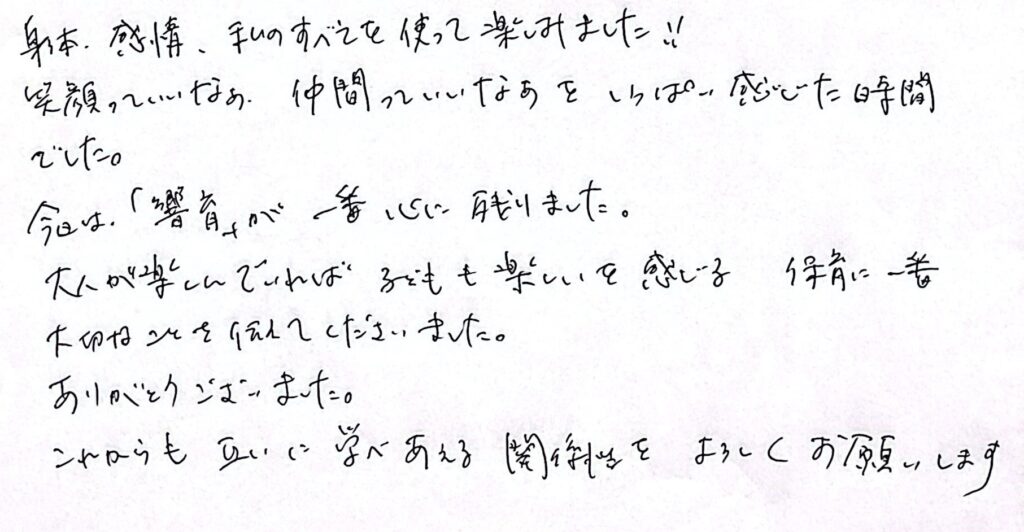 身体、感情、私のすべてを使って楽しみました!!
笑顔っていいなぁ、仲間っていいなぁを いっぱい感じた時間
でした。
今日は、「響育」が 一番 心に 残りました。
大人が楽しんでいれば 子どもも 楽しいを 感じる 保育に一番
大切なことを 伝えてくださいました。
ありがとうございました。
これからも 互いに 学べあえる 関係性を よろしくお願いします